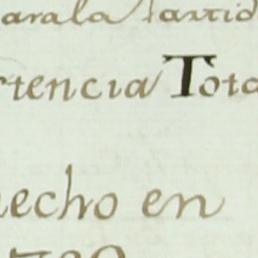 arala Partid
rtencia Tota
echo en